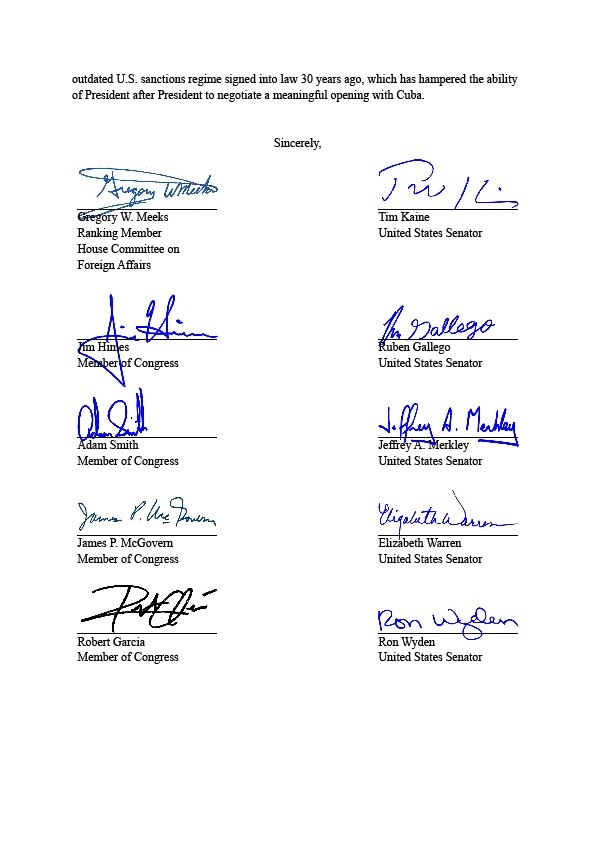 outdated U.S. sanctions regime signed into law 30 years ago, which has hampered the ability
of President after President to negotiate a meaningful opening with Cuba.
Sincerely,
Gregory W Meeks
Gregory W. Meeks
Ranking Member
House Committee on
Foreign Affairs
Tim Kaine
United States Senator
Jim Himes
Jim Himes
Member of Congress
Gallego
Ruben Gallego
United States Senator
Adam Smith
Adam Smith
Member of Congress
Jeffrey A. Merkley
Jeffrey A. Merkley
United States Senator
James P. McGovern
James P. McGovern
Member of Congress
Elizabeth Warren
Elizabeth Warren
United States Senator
Robert Garcia
Member of Congress
Ron Wyden
Ron Wyden
United States Senator